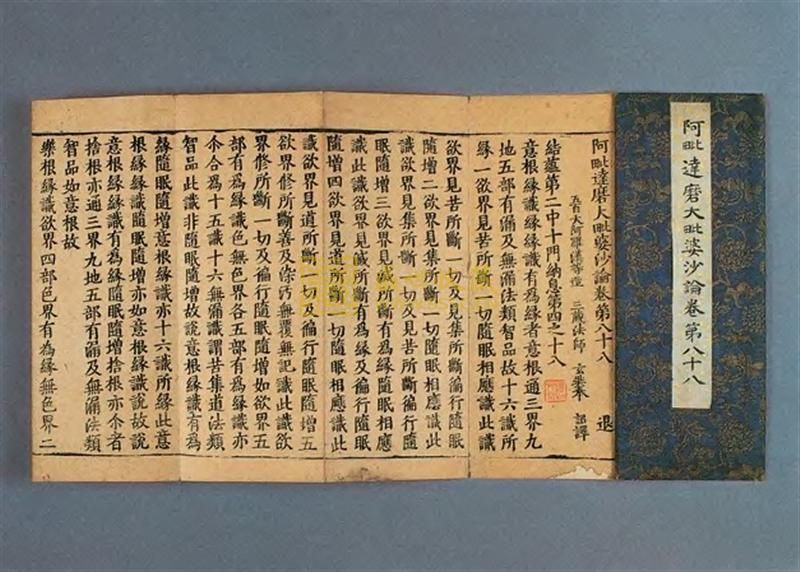 阿毗達磨大毗婆沙論卷第八十八
阿毗達磨大毗婆沙論卷第八十八 退
五百大阿羅漢等造 三藏法師 玄奘奉 詔譯
結蘊第二中十門納息第四之十八
意根緣識緣緣識有爲緣者意根通三界九
地五部有漏及無漏法類智品故十六識所
緣一欲界見苦所斷一切隨眠相應識此識
欲界見苦所斷一切及見集所斷徧行隨眠
隨增二欲界見集所斷一切隨眠相應識此
識欲界見集所斷一切及見苦所斷徧行隨
眠隨增三欲界見滅所斷有爲緣隨眠相應
識此識欲界見滅所斷有爲緣及徧行隨眠
隨增四欲界見道所斷一切隨眠相應識此
識欲界見道所斷一切及徧行隨眠隨增五
欲界修所斷善及染污無覆無記識此識欲
界修所斷一切及徧行隨眠隨增如欲界五
部有爲緣識色無色界各五部有爲緣識亦
尒合爲十五識十六無漏識謂苦集道法類
智品此識非隨眠隨增故說意根緣識有爲
緣隨眠隨增意根緣識亦十六識所緣此意
根緣緣識隨眠隨增亦如意根緣識說故說
意根緣緣識有爲緣隨眠隨增捨根亦尒者
捨根亦通三界九地五部有漏及無漏法類
智品如意根故
樂根緣識欲界四部色界有爲緣無色界二